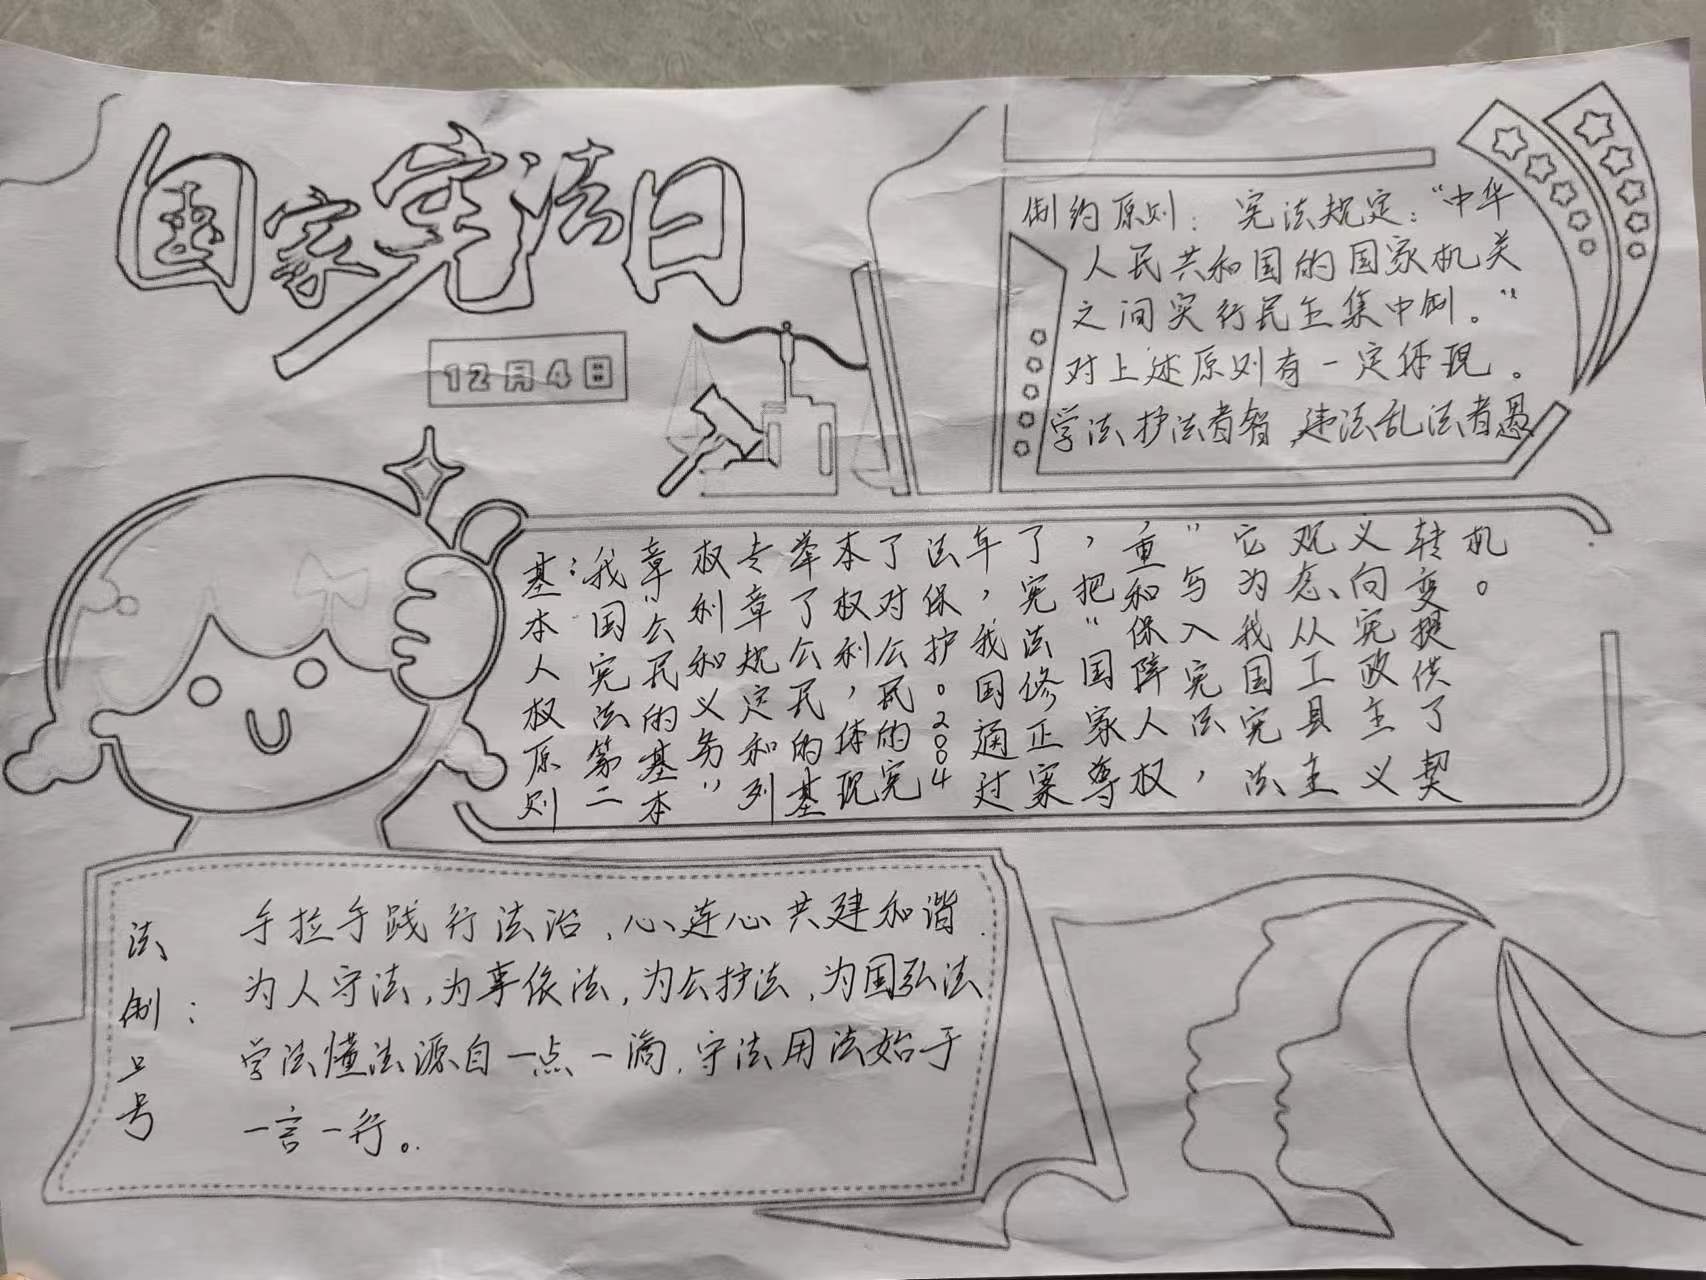 国家宪法日
12月4日
制约原则：宪法规定：“中华
人民共和国的国家机关
之间实行民主集中制。”
对上述原则有一定体现。
学法护法者智，违法乱法者愚
基本人权原则：
我国宪法第二
章“公民的基本
权利和义务”
专章规定和列
举了公民的基
本权利，体现
了对公民的宪
法保护。2004
年，我国通过
了宪法修正案
，把“国家尊
重和保障人权
”写入宪法，
它为我国宪法
观态、从工具主
义向宪政主义
转变提供了契
机。
法制口号：
手拉手践行法治，心连心共建和谐.
为人守法，为事依法，为公护法，为国弘法
学法懂法源自一点一滴，守法用法始于
一言一行。